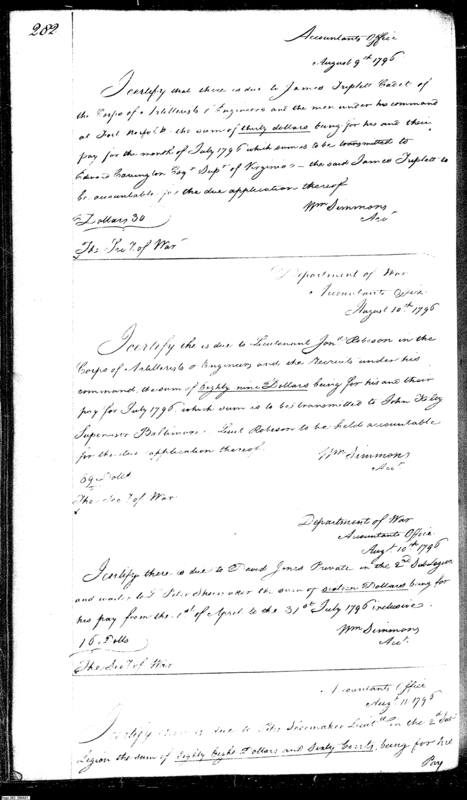 282
Accountants Office
August 9th 1796
I certify that there is due to James Triplett Cadet of
the Corps of Artillerists & Engineers and the men under his command
at Fort Norfolk the sum of thirty dollars being for his and their
pay for the month of July 1796 which sum is to be transmitted to
Edward Carrington Esqr Supt of Virginia – the said James Triplett to
be accountable for the due application thereof
Wm Simmons
Acct
Dollars 30
The Secy. of War
Department of War
Accountants Office
August 10th 1796
I certify the is due to Lieutenant Jonn Robeson in the
Corps of Artillerists & Engineers and the Recruits under his
command, the sum of Eighty nine Dollars being for his and their
pay for July 1796 which sum is to be transmitted to John
Supervisor Baltimore. Lieut Robeson to be held accountable
for the due application thereof
Wm Simmons
Acct
89 Dolls
The Secy. of War
Department of War
Accountants Office
Augt 10th 1796
I certify there is due to David Jones Private in the 2nd SubLegion
and waiter to Shoemaker the sum of sixteen Dollars being for
his pay from the 1st of April to the 31st July 1796 inclusive.
Wm Simmons
Acct.
16 Dolls
The Secy. of War
Accountants Office
Augt 11. 1796
I certify there is due to Peter Shoemaker Lieutt in the 2d Sub
Legion the sum of Eighty Eight Dollars and Sixty Cents, being for his
Pay